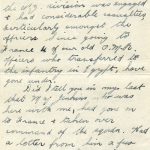 the N.Z. division was engaged
& had considerable casualties
particularly amongst the
officers. Since going to
France 4 of our old O.M.R.
officers who transferred to
the infantry in Egypt, have
gone under.
Did I tell you in my last
that Jenkins, who was
has left me, had gone on
to France & taken over
command of the again. Had
a letter from him a few